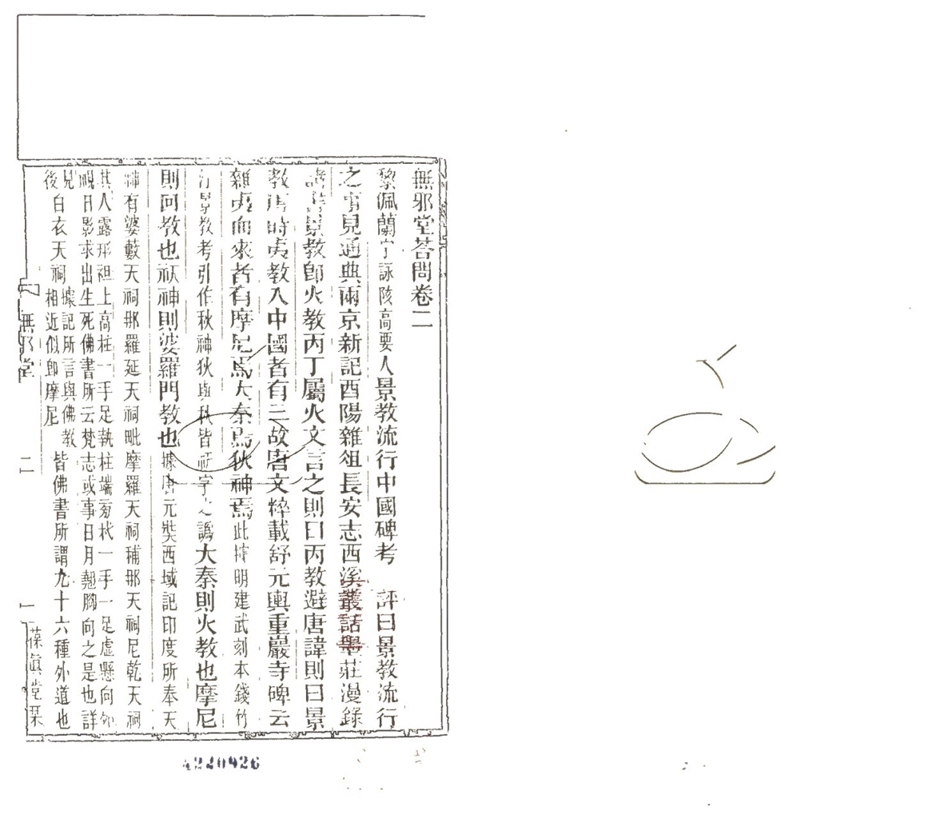 無邪堂荅問卷二
黎佩蘭字詠陔高要人景教流行中國碑考　評曰景教流行
之事見通典兩京新記酉陽雜俎長安志西溪叢話墨莊漫錄
諸書景教即火教丙丁屬火文言之則曰丙教避唐諱則曰景
教唐時夷教入中國者有三故唐文粹載舒元輿重巖寺碑云
雜夷而來者有摩尼焉大秦焉狄神焉此據明建武刻本錢竹
汀景教考引作秋神狄與秋皆祅字之譌大秦則火教也摩尼
則回教也祅神則婆羅門教也據唐元奘西域記印度所奉天
神有婆藪天祠那羅延天祠毗摩羅天祠稱那天祠尼乾天祠
其人露形袒上高柱一手足執柱端旁杙一手一足虛懸向外
睍日影求出生死佛書所云梵志或事日月翹腳向之是也詳
見後白衣天祠據記所言與佛教相近似即摩尼皆佛書所謂九十六種外道也
無邪堂　二　一　葆真堂栞
4220926